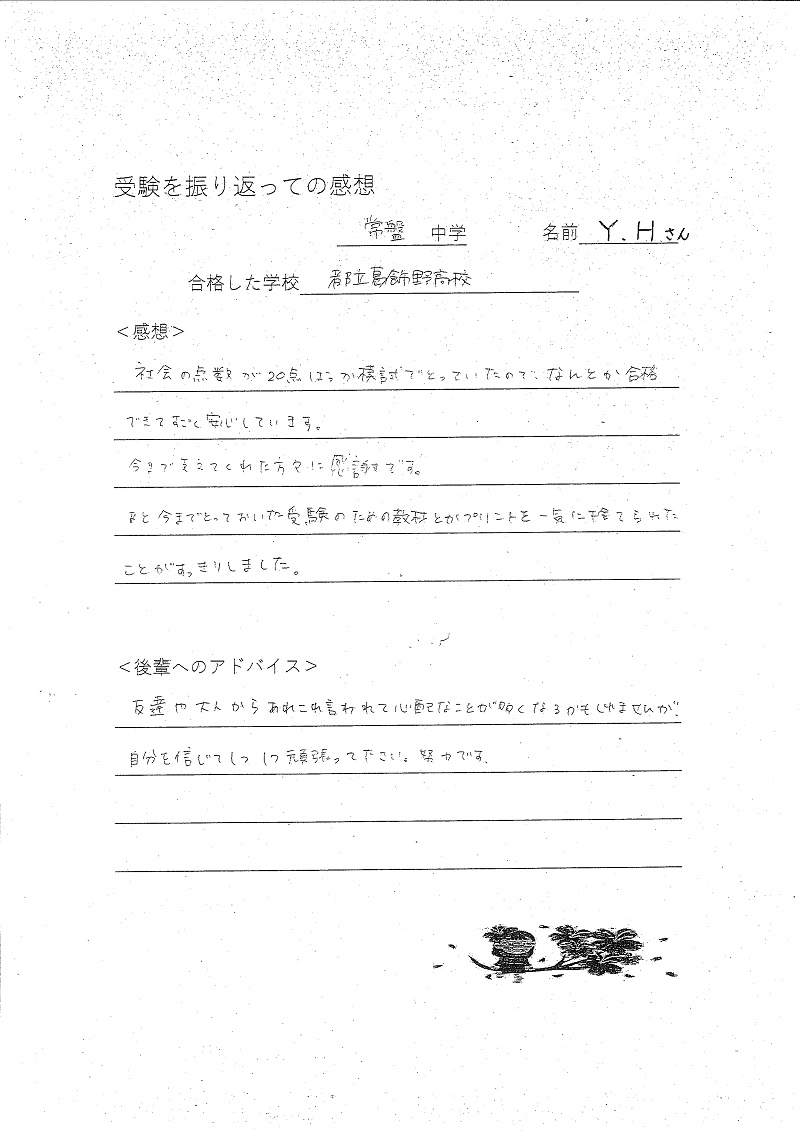 受験を振り返っての感想
常盤 中学 名前 Y.Hさん
合格した学校 都立葛飾野高校
<感想>
社会の点数が20点ばっか模試でとっていたので、なんとか合格
できてすごく安心しています。
今まで支えてくれた方々に感謝です。
あと今までとっておいた受験のための教材とかプリントを一気に捨てられた
ことがすっきりしました。
<後輩へのアドバイス>
友達や大人からあれこれ言われて心配なことが多くなるかもしれませんが、
自分を信じて頑張って下さい。努力です。